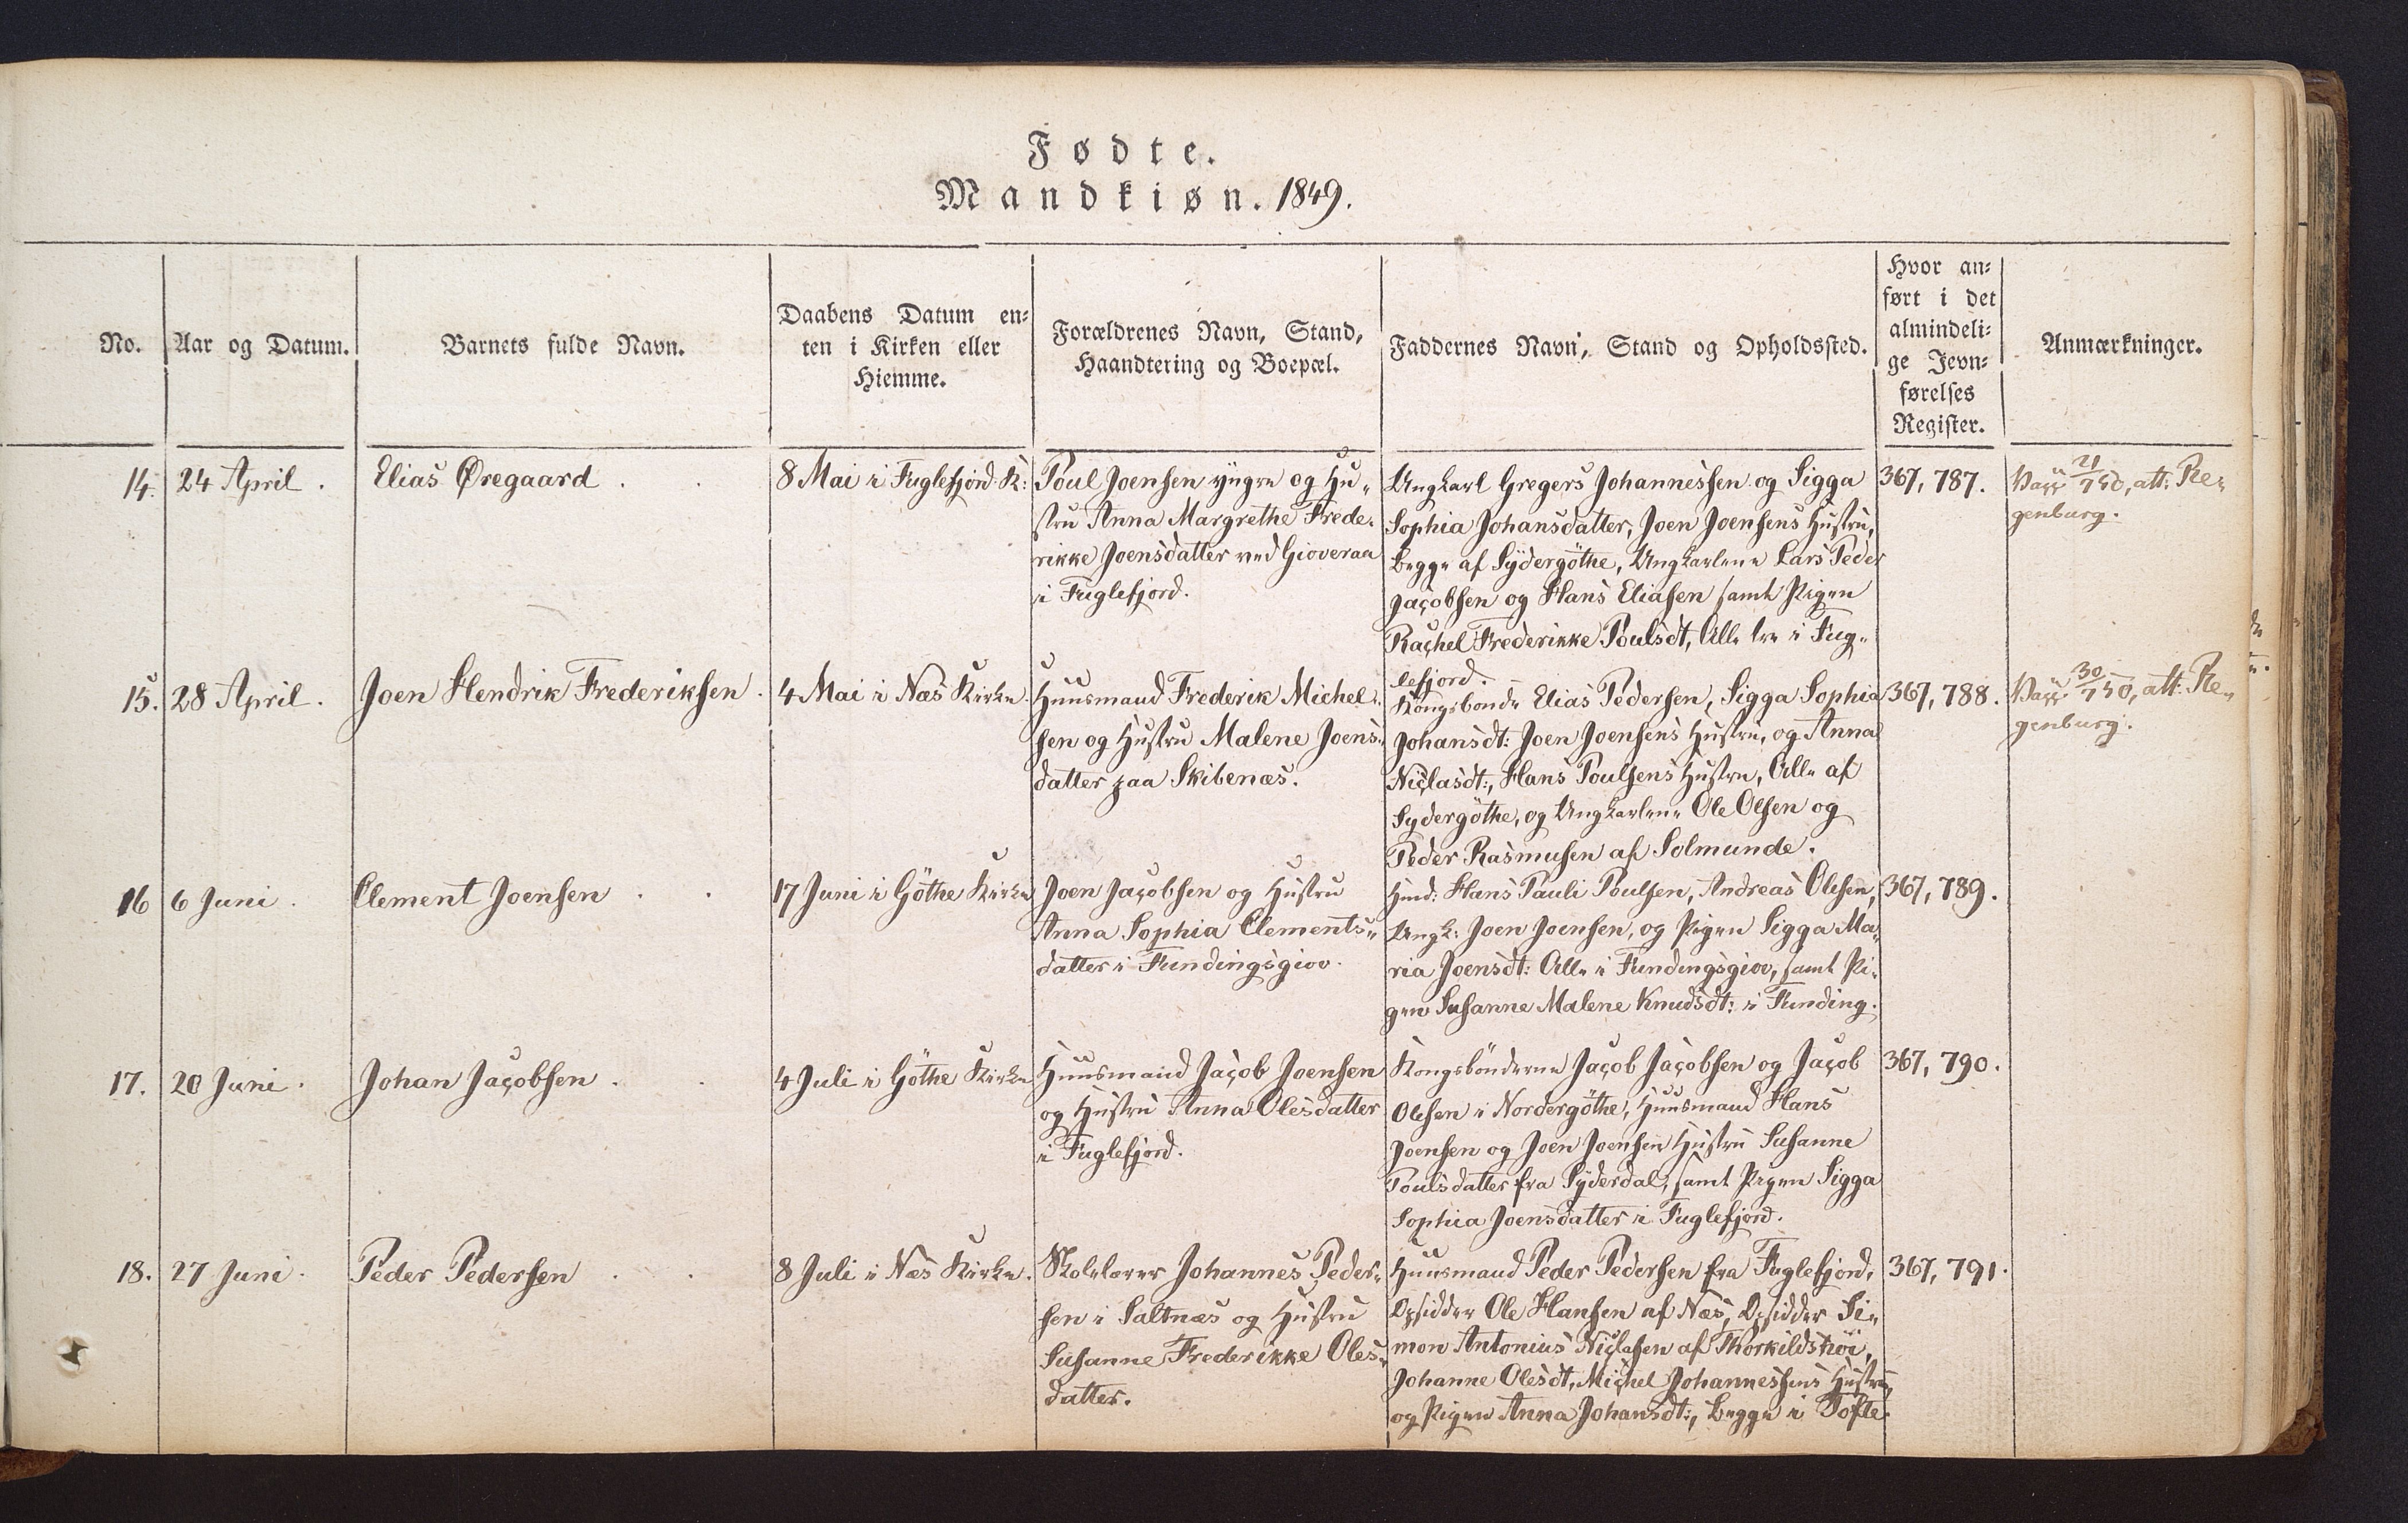 Fødte.
Mandkiøn. 1849.
No.
Aar og Datum.
Barnets fulde Navn.
Daabens Datum en-
ten i Kirken eller
Hiemme.
Forældrenes Navn, Stand,
Haandtering og Boepæl.
Faddernes Navn, Stand og Opholdssted.
Hvor an-
ført i det
almindeli-
ge Jevn-
førelses
Register.
Anmærkninger.
14.
24 April.
Elias Øregaard
8 Mai i Fuglefjord K:
Poul Joensen yngre og Hu-
stru Anna Margrethe Frede-
rikke Joensdatter ved Gioveraa
i Fuglefjord.
Ungkarl Gregers Johannessen og Sigga
Sophia Johansdatter, Joen Joensens Hustru,
begge af Sydergöthe, Ungkarlene Lars Peder
Jacobsen og Hans Eliasen samt Pigen
Rachel Frederikke Poulsdt, Alle tre i Fug-
lefjord.
367, 787.
Vacc 21/7 50, att: Re-
genburg.
15.
28 April.
Joen Hendrik Frederiksen.
4 Mai i Næs Kirke.
Huusmand Frederik Michel-
sen og Hustru Malene Joens-
datter paa Skibenæs.
Kongsbonde Elias Pedersen, Sigga Sophia
Johansdt: Joen Joensens Hustru, og Anna
Niclasdt:, Hans Poulsens Hustru, Alle af
Sydergöthe, og Ungkarlene Ole Olsen og
Peder Rasmusen af Solmunde.
367, 788.
Vacc 30/7 50, att: Re-
genburg.
16
6 Juni.
Clement Joensen
17 Juni i Göthe Kirke
Joen Jacobsen og Hustru
Anna Sophia Clements-
datter i Fundingsgiov.
Hmd: Hans Pauli Poulsen, Andreas Olesen,
Ungk: Joen Joensen, og Pigen Sigga Ma-
ria Joensdt: Alle i Fundingsgiov, samt Pi-
gen Susanne Malene Knudsdt: i Funding.
367, 789.
17.
20 Juni.
Johan Jacobsen
4 Juli i Göthe Kirke
Huusmand Jacob Joensen
og Hustru Anna Olesdatter
i Fuglefjord.
Kongsbönderne Jacob Jacobsen og Jacob
Olesen i Nordergöthe, Huusmand Hans
Joensen og Joen Joensens Hustru Susanne
Poulsdatter fra Syderdal, samt Pigen Sigga
Sophia Joensdatter i Fuglefjord.
367, 790.
18.
27 Juni.
Peder Pedersen
8 Juli i Næs Kirke.
Skolelærer Johannes Peder-
sen i Saltnæs og Hustru
Susanne Frederikke Oles-
datter.
Huusmand Peder Pedersen fra Fuglefjord,
Opsidder Ole Hansen af Næs, Opsidder Si-
mon Antonius Niclasen af Thorkildshöi,
Johanne Olesdt, Michel Johannessens Hustru,
og Pigen Anna Johansdt:, begge i Tofte.
367, 791.